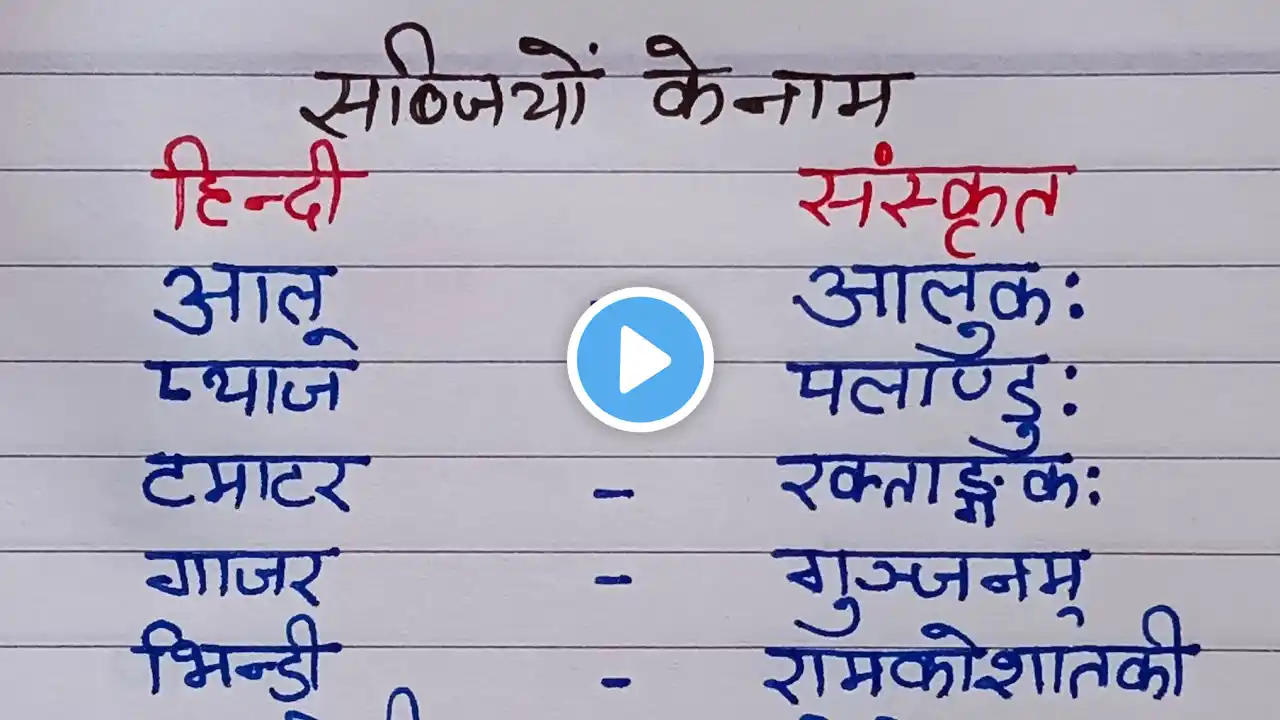 सब्जियों के नाम
हिन्दी संस्कृत
आलू - आलुकः
प्याज पलाण्डुः
टमाटर - रक्ताङ्गकः
गाजर - गुञ्जनम्
भिन्डी - रामकोशातकी